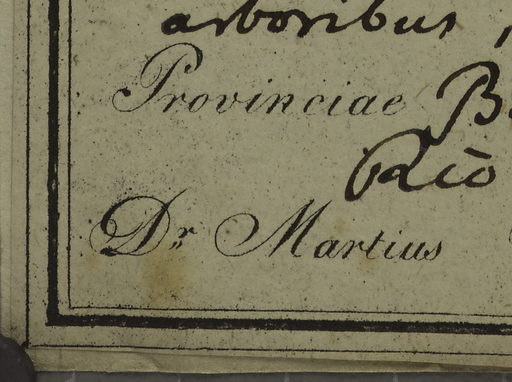 arboribus,
Provinciae B
Dr Martius